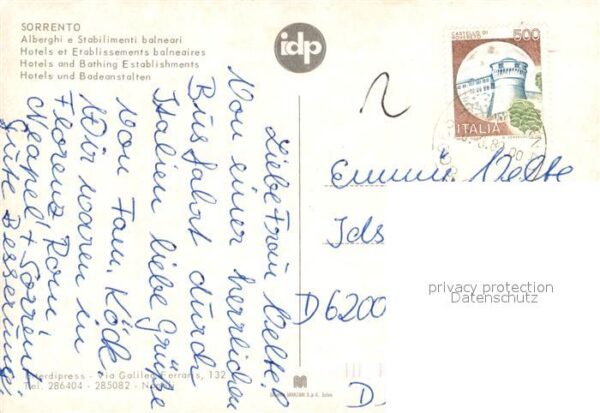 SORRENTO
Alberghi e Stabilimenti balneari
Hotels et Etablissements balneaires
Hotels and Bathing Establishments
Hotels und Badeanstalten
idp
CASTELLO DI
ROVERETO
500
ITALIA
Liebe Frau Velte!
Von einer herrlichen
Busfahrt durch
Italien liebe Grüße
von Fam. Köck
Wir waren in
Florenz Rom
Neapel + Sorrent
Gute Besserung!
Emmi Velte
Ids
D 6200
D
privacy protection
Datenschutz
Interdipress - Via Galileo Ferraris, 132
Tel. 286404 - 285082 - Napoli